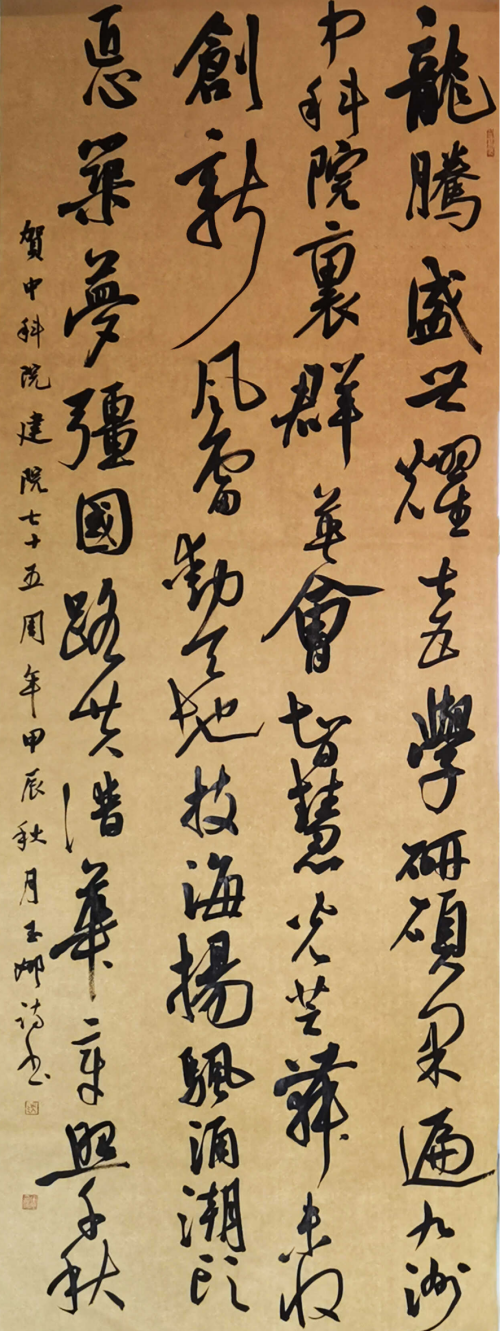 龍騰盛世耀七五學研碩果遍九洲
中科院裏群英會智慧光芒舞未收
創新風雷動天地技海揚颿涌潮頭
匠心築夢彊國路共譜華章照千秋
賀中科院建院七十五周年甲辰秋月玉娜诗书